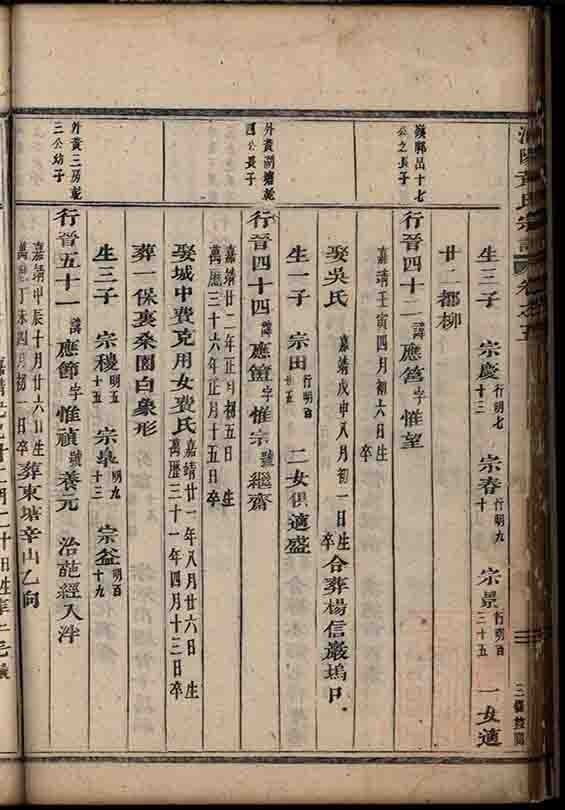 宗譜
生三子 宗慶行明七十三 宗春行明九十 宗景行明百三十五 一女適
廿二都柳
漢郭品十七公之長子
行晉四十二諱應筥字惟望
嘉靖壬寅四月初六日生 卒
娶吳氏 嘉靖戊申八月初一日生 卒 合葬楊信巖塢口
生一子 宗田行明百廿五 二女俱適盛
外黃湖塘乾四公長子
行晉四十四諱應簠字惟宗號繼齋
嘉靖廿二年正月初五日生
萬歷三十六年正月十五日卒
娶城中費克用女費氏嘉靖廿一年八月廿六日生 萬歷三十一年四月十三日卒
葬一保裏桑園白象形
生三子 宗稷明五十五 宗皋明九十三 宗益明百十九
外黃三房乾三公幼子
行晉五十一諱應節字惟禎號養元 治葩經入泮
嘉靖甲辰十月廿六日生 萬歷丁未四月初一日卒 葬東塘辛山乙向